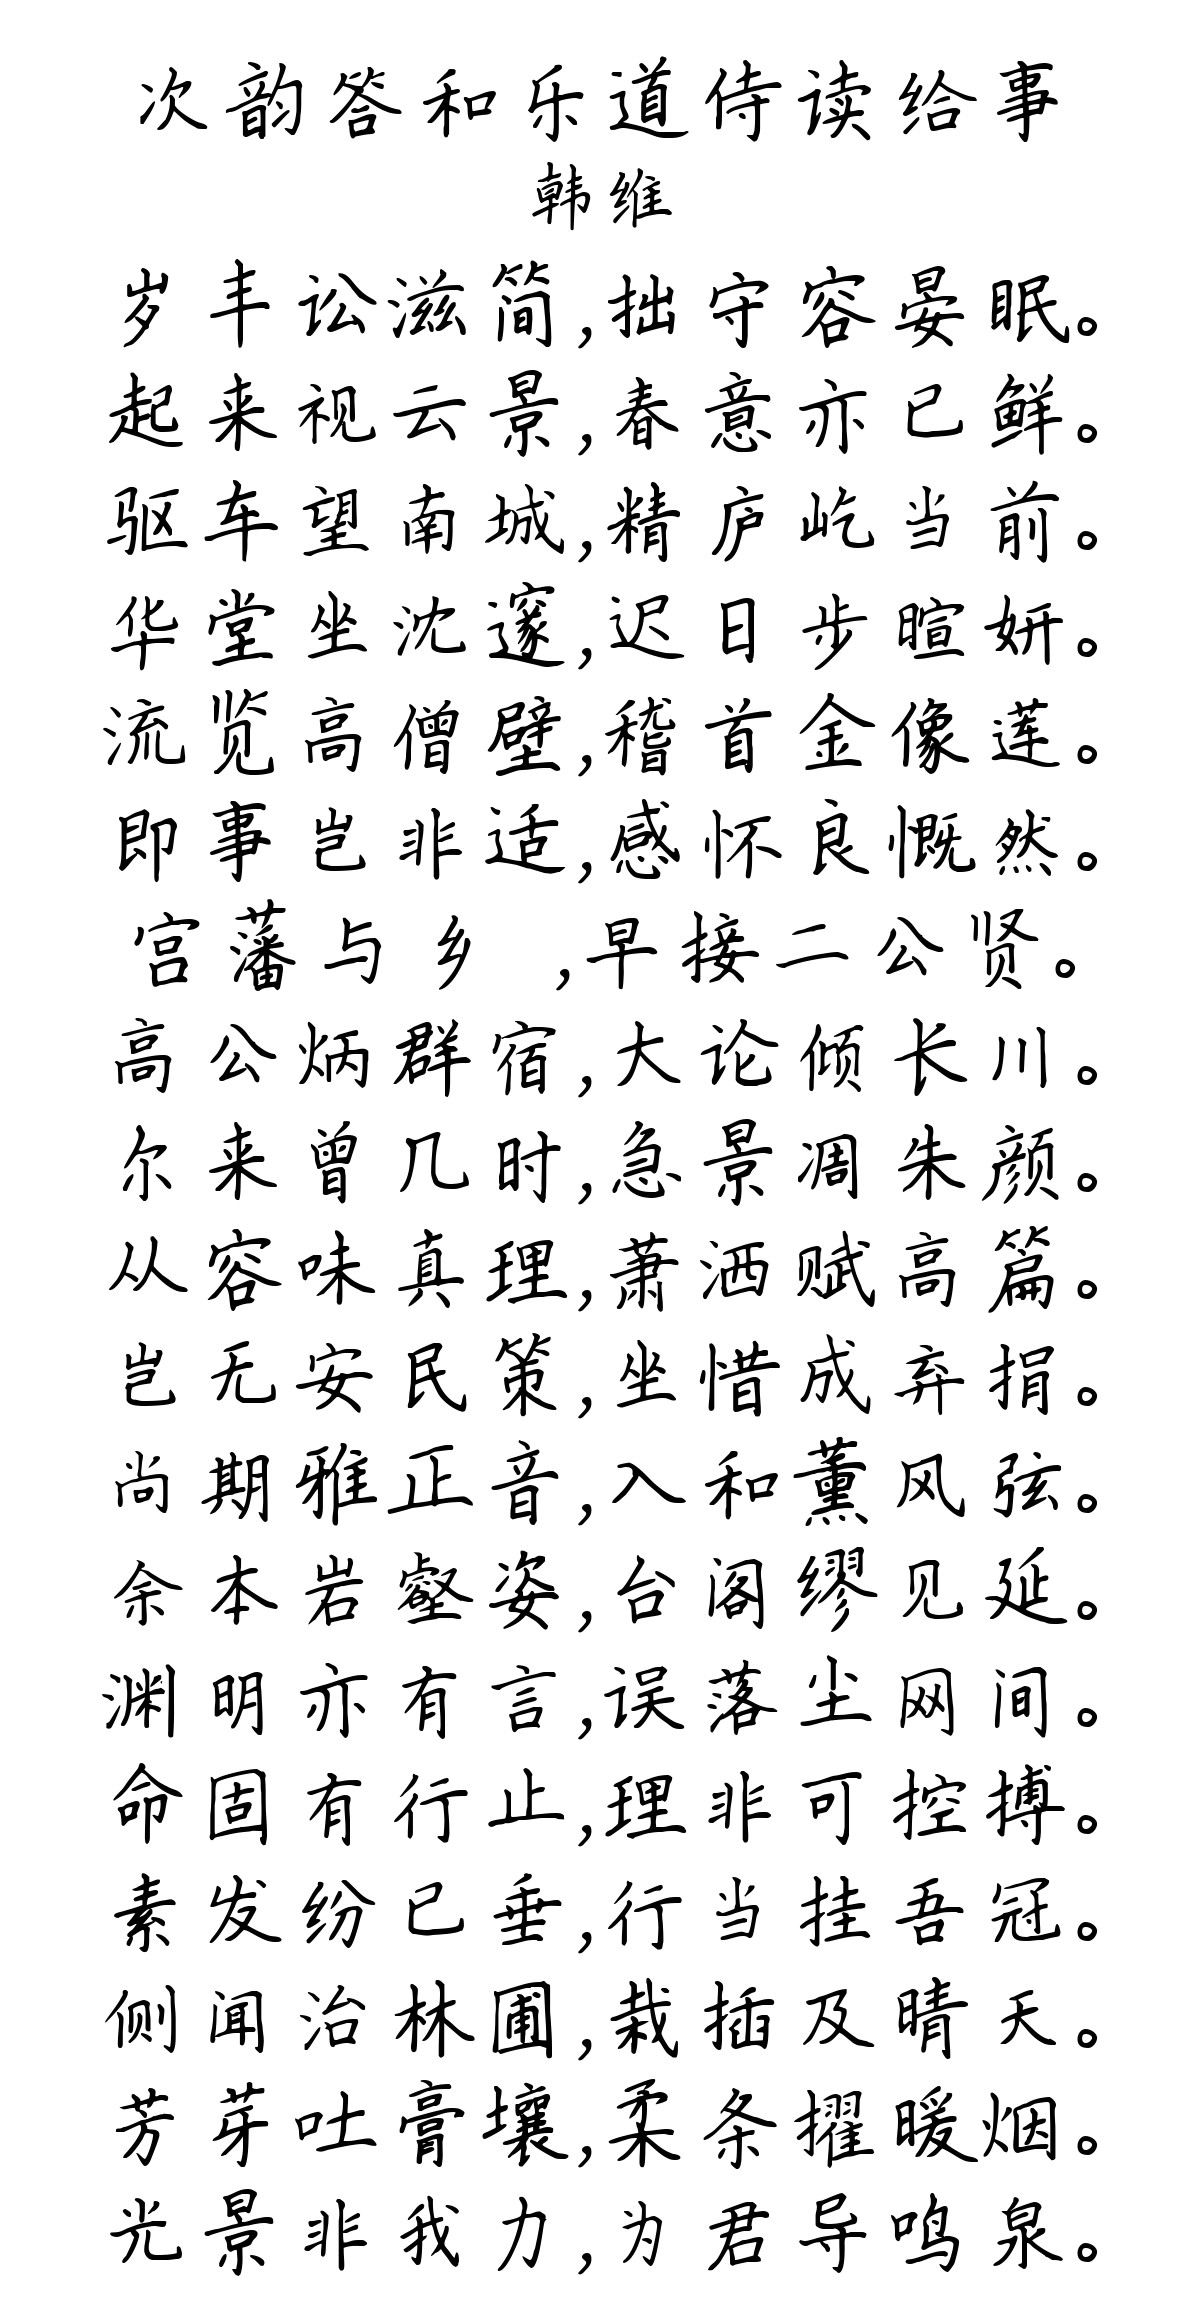 次韵答和乐道侍读给事
韩维
岁丰讼滋简,拙守容晏眠。
起来视云景,春意亦已鲜。
驱车望南城,精庐屹当前。
华堂坐沈邃,迟日步暄妍。
流览高僧壁,稽首金像莲。
即事岂非适,感怀良慨然。
宫藩与乡 ,早接二公贤。
高公炳群宿,大论倾长川。
尔来曾几时,急景凋朱颜。
从容味真理,萧洒赋高篇。
岂无安民策,坐惜成弃捐。
尚期雅正音,入和薰风弦。
余本岩壑姿,台阁缪见延。
渊明亦有言,误落尘网间。
命固有行止,理非可控搏。
素发纷已垂,行当挂吾冠。
侧闻治林圃,栽插及晴天。
芳芽吐膏壤,柔条擢暖烟。
光景非我力,为君导鸣泉。